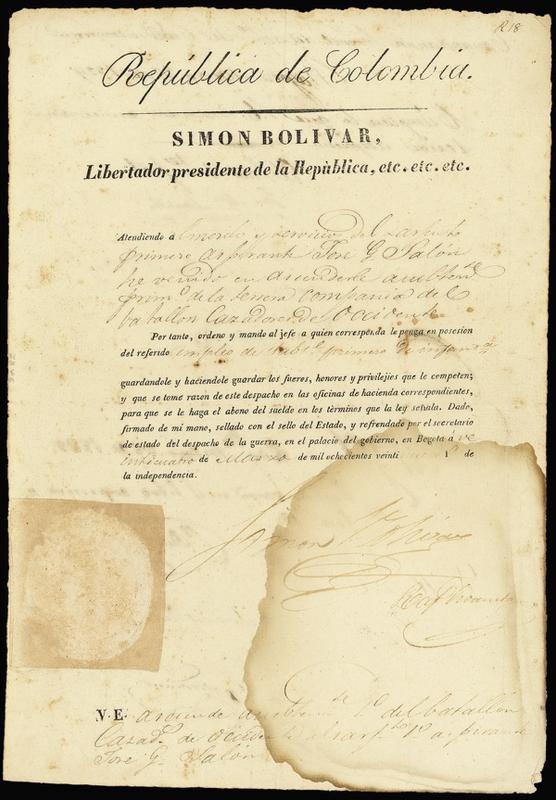 R18
República de Colombia.
SIMON BOLIVAR,
Libertador presidente de la Repùblica, etc. etc. etc.
Atendiendo al merito y servicios del sarjento
primero aspirante José G Salón
he venido en ascenderle a subtente
prim° de la tercera compania de el
batallon Cazadores de Occidente
Por tanto, ordeno y mando al jefe a quien corresponda le ponga en posesion
del referido empleo de subte primero de infanta
guardandole y haciendole guardar los fueros, honores y privilejies que le competen;
y que se tome razon de este despacho en las oficinas de hacienda correspondientes,
para que se le haga el abono del sueldo en los tèrminos que la ley señala. Dado,
firmado de mi mano, sellado con el sello del Estado, y refrendado por el secretario
de estado del despacho de la guerra, en el palacio del gobierno, en Bogotá a ve
inticuatro de Marzo de mil ochocientos veinti de
la independencia.
Simon Bolivar
V.E. asciende a 1° del batallon
Cazads de 1° aspirante
José G Salón